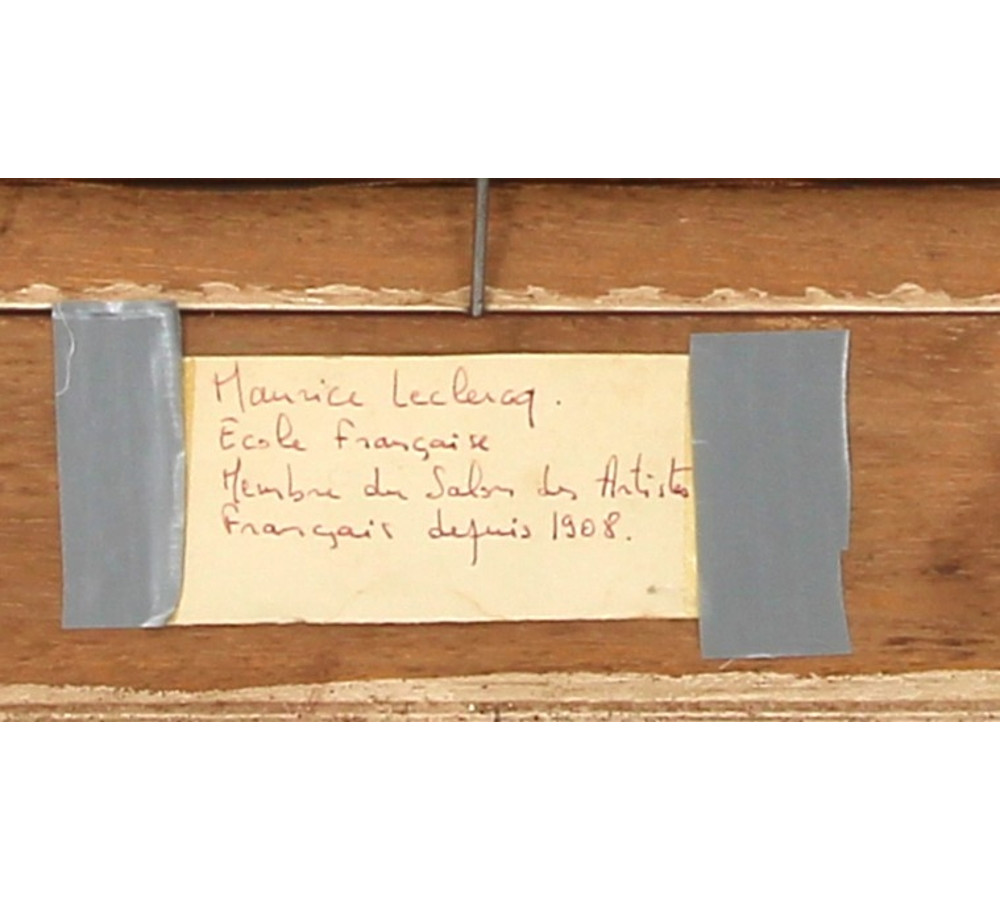 Maurice Leclercq.
École Française
Membre du Salon des Artistes
Français depuis 1908.